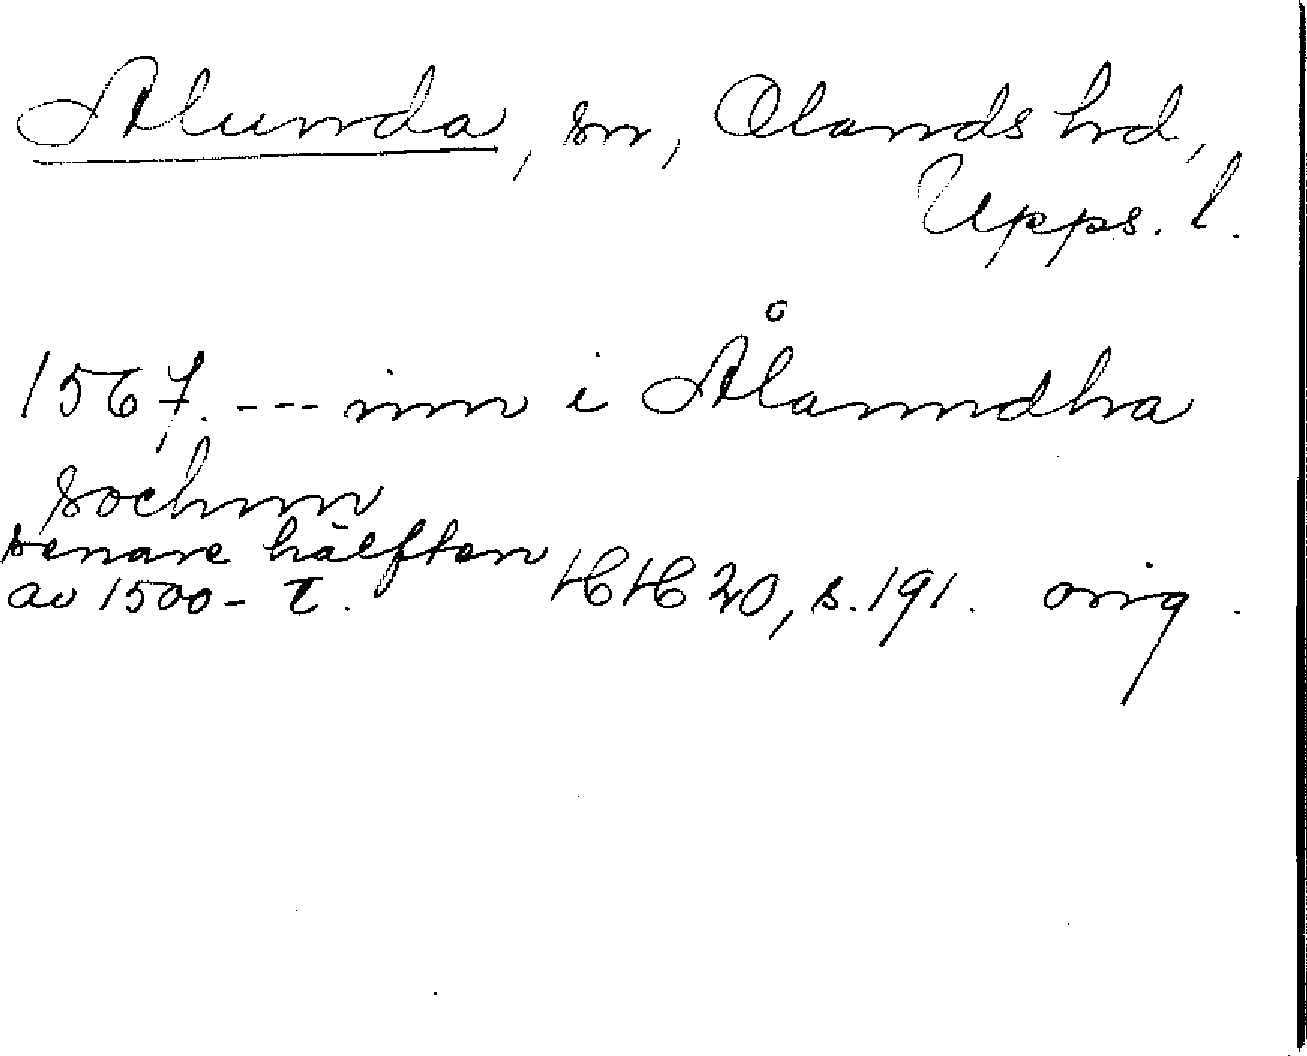 Alunda, sn, Olands hd,
Upps. l.
1567. --- inn i Ålanndha
sochnn
senare hälften
av 1500-t. HH 20, s. 191. orig.